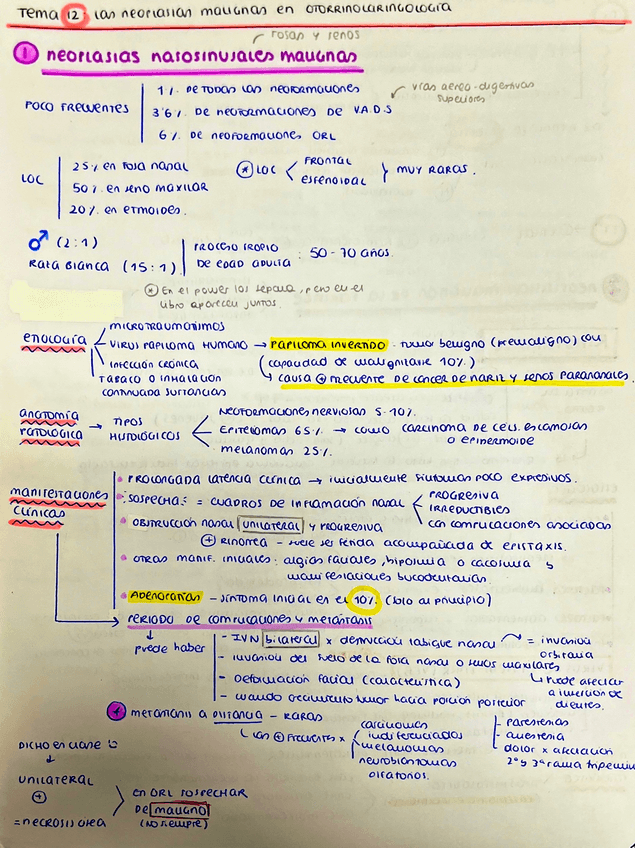 Tema 12: las neoplasias malignas en otorrinolaringología
fosas y senos
① neoplasias nasosinusales malignas
POCO FRECUENTES
1% DE TODAS LAS NEOFORMACIONES
3'6% DE NEOFORMACIONES DE V.A.D.S
vías aéreo-digestivas superiores
6% DE NEOFORMACIONES ORL
LOC
25% en fosa nasal
50% en seno maxilar
20% en etmoides.
* LOC < FRONTAL
ESFENOIDAL } MUY RARAS.
♂ (2:1)
RAZA BLANCA (15:1)
PROCESO PROPIO
DE EDAD ADULTA : 50-70 años.
* En el power los separa, pero en el
libro aparecen juntos.
ETIOLOGÍA
MICROTRAUMATISMOS
VIRUS PAPILOMA HUMANO → PAPILOMA INVERTIDO: tumor benigno (premaligno) con
capacidad de malignizarse 10%
↳ CAUSA ⊕ FRECUENTE DE CÁNCER DE NARIZ Y SENOS PARANASALES.
INFECCIÓN CRÓNICA
TABACO O INHALACIÓN
CONTINUADA SUSTANCIAS
ANATOMÍA
PATOLÓGICA → TIPOS
HISTOLÓGICOS
NEOFORMACIONES NERVIOSAS 5-10%
EPITELIOMAS 65% → como CARCINOMA DE CÉLS. ESCAMOSAS
O EPIDERMOIDE
MELANOMAS 25%.
MANIFESTACIONES
CLÍNICAS
• PROLONGADA LATENCIA CLÍNICA → inicialmente síntomas poco expresivos.
• SOSPECHA: = CUADROS DE INFLAMACIÓN NASAL
PROGRESIVA
IRREDUCTIBLES
CON COMPLICACIONES ASOCIADAS
• OBSTRUCCIÓN NASAL UNILATERAL y PROGRESIVA
⊕ RINORREA - suele ser fétida acompañada de EPISTAXIS.
• OTRAS MANIF. INICIALES: algias faciales, hiposmia o cacosmia y
manifestaciones bucodentarias.
• ADENOPATÍAS - SÍNTOMA INICIAL EN EL 10% (solo al principio)
PERIODO DE COMPLICACIONES Y METÁSTASIS
↓
puede haber
- IVN bilateral x destrucción tabique nasal = invasión
orbitaria
- invasión del suelo de la fosa nasal o senos maxilares
↳ Puede afectar
a inserción de
dientes.
- DEFORMACIÓN FACIAL (característica)
- cuando crecimiento tumor hacia porción posterior
- parestesias
- anestesia
- dolor x afectación
2ª y 3ª rama trigémino
* METÁSTASIS A DISTANCIA - RARAS
↳ las ⊕ frecuentes x
carcinomas
indiferenciados
melanomas
neuroblastomas
olfatorios.
DICHO EN CLASE
↓
UNILATERAL
⊕
= NECROSIS ÓSEA
EN ORL SOSPECHAR
DE MALIGNO
(NO SIEMPRE)